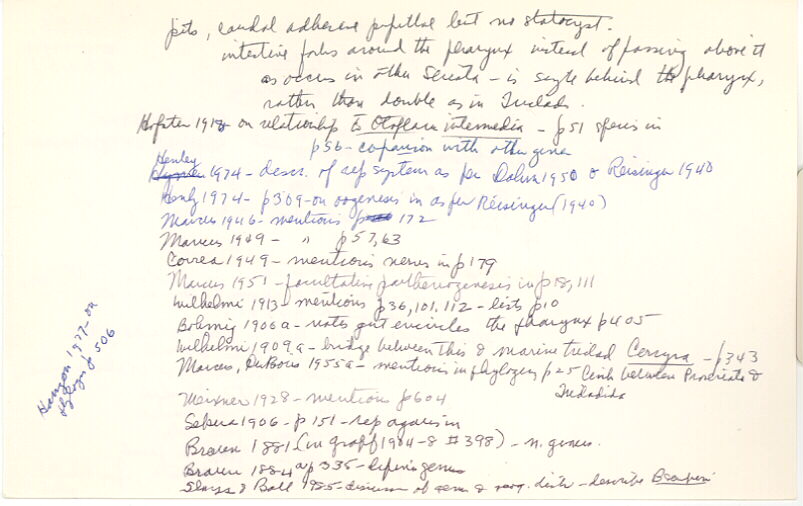 pits, caudal adhesive papillae but no statocyst.
intestine forks around the pharynx instead of passing above it
as occurs in other Seriata - is single behind the pharynx,
rather than double as in Triclads.
Hofsten 1918 on relationship to Otoplana intermedia - p51 species in
p56 - comparison with other genera
Henley
1974 - descr. of rep system as per Dahm 1950 & Reisinger 1940
Henly 1974 - p309 - on oogenesis in as per Reisinger (1940)
Marcus 1946 - mentions 172
Marcus 1949 - " p57,63
Correa 1949 - mentions nerves in p179
Marcus 1951 - facultative parthenogenesis in p18, 111
Wilhelmi 1913 - mentions p36, 101, 112 - lists p10
Bohmig 1906a - notes gut encircles the pharynx p405
Wilhelmi 1909a - bridge between this & marine triclad Cercyra - p343
Marcus, DuBois 1955a - mentions in phylogeny p25 link between Proseriata &
Tricladida
Meixner 1928 - mentions p604
Sekera 1906 - p151 - rep organs in
Braun 1881 (in Graff 1904-8 #398) - n. genus.
Braun 1884a p335 - defines genus
Sluys & Ball 1985 - discussion of genus & geog. distr - describe
1977 - on
phylogeny p506